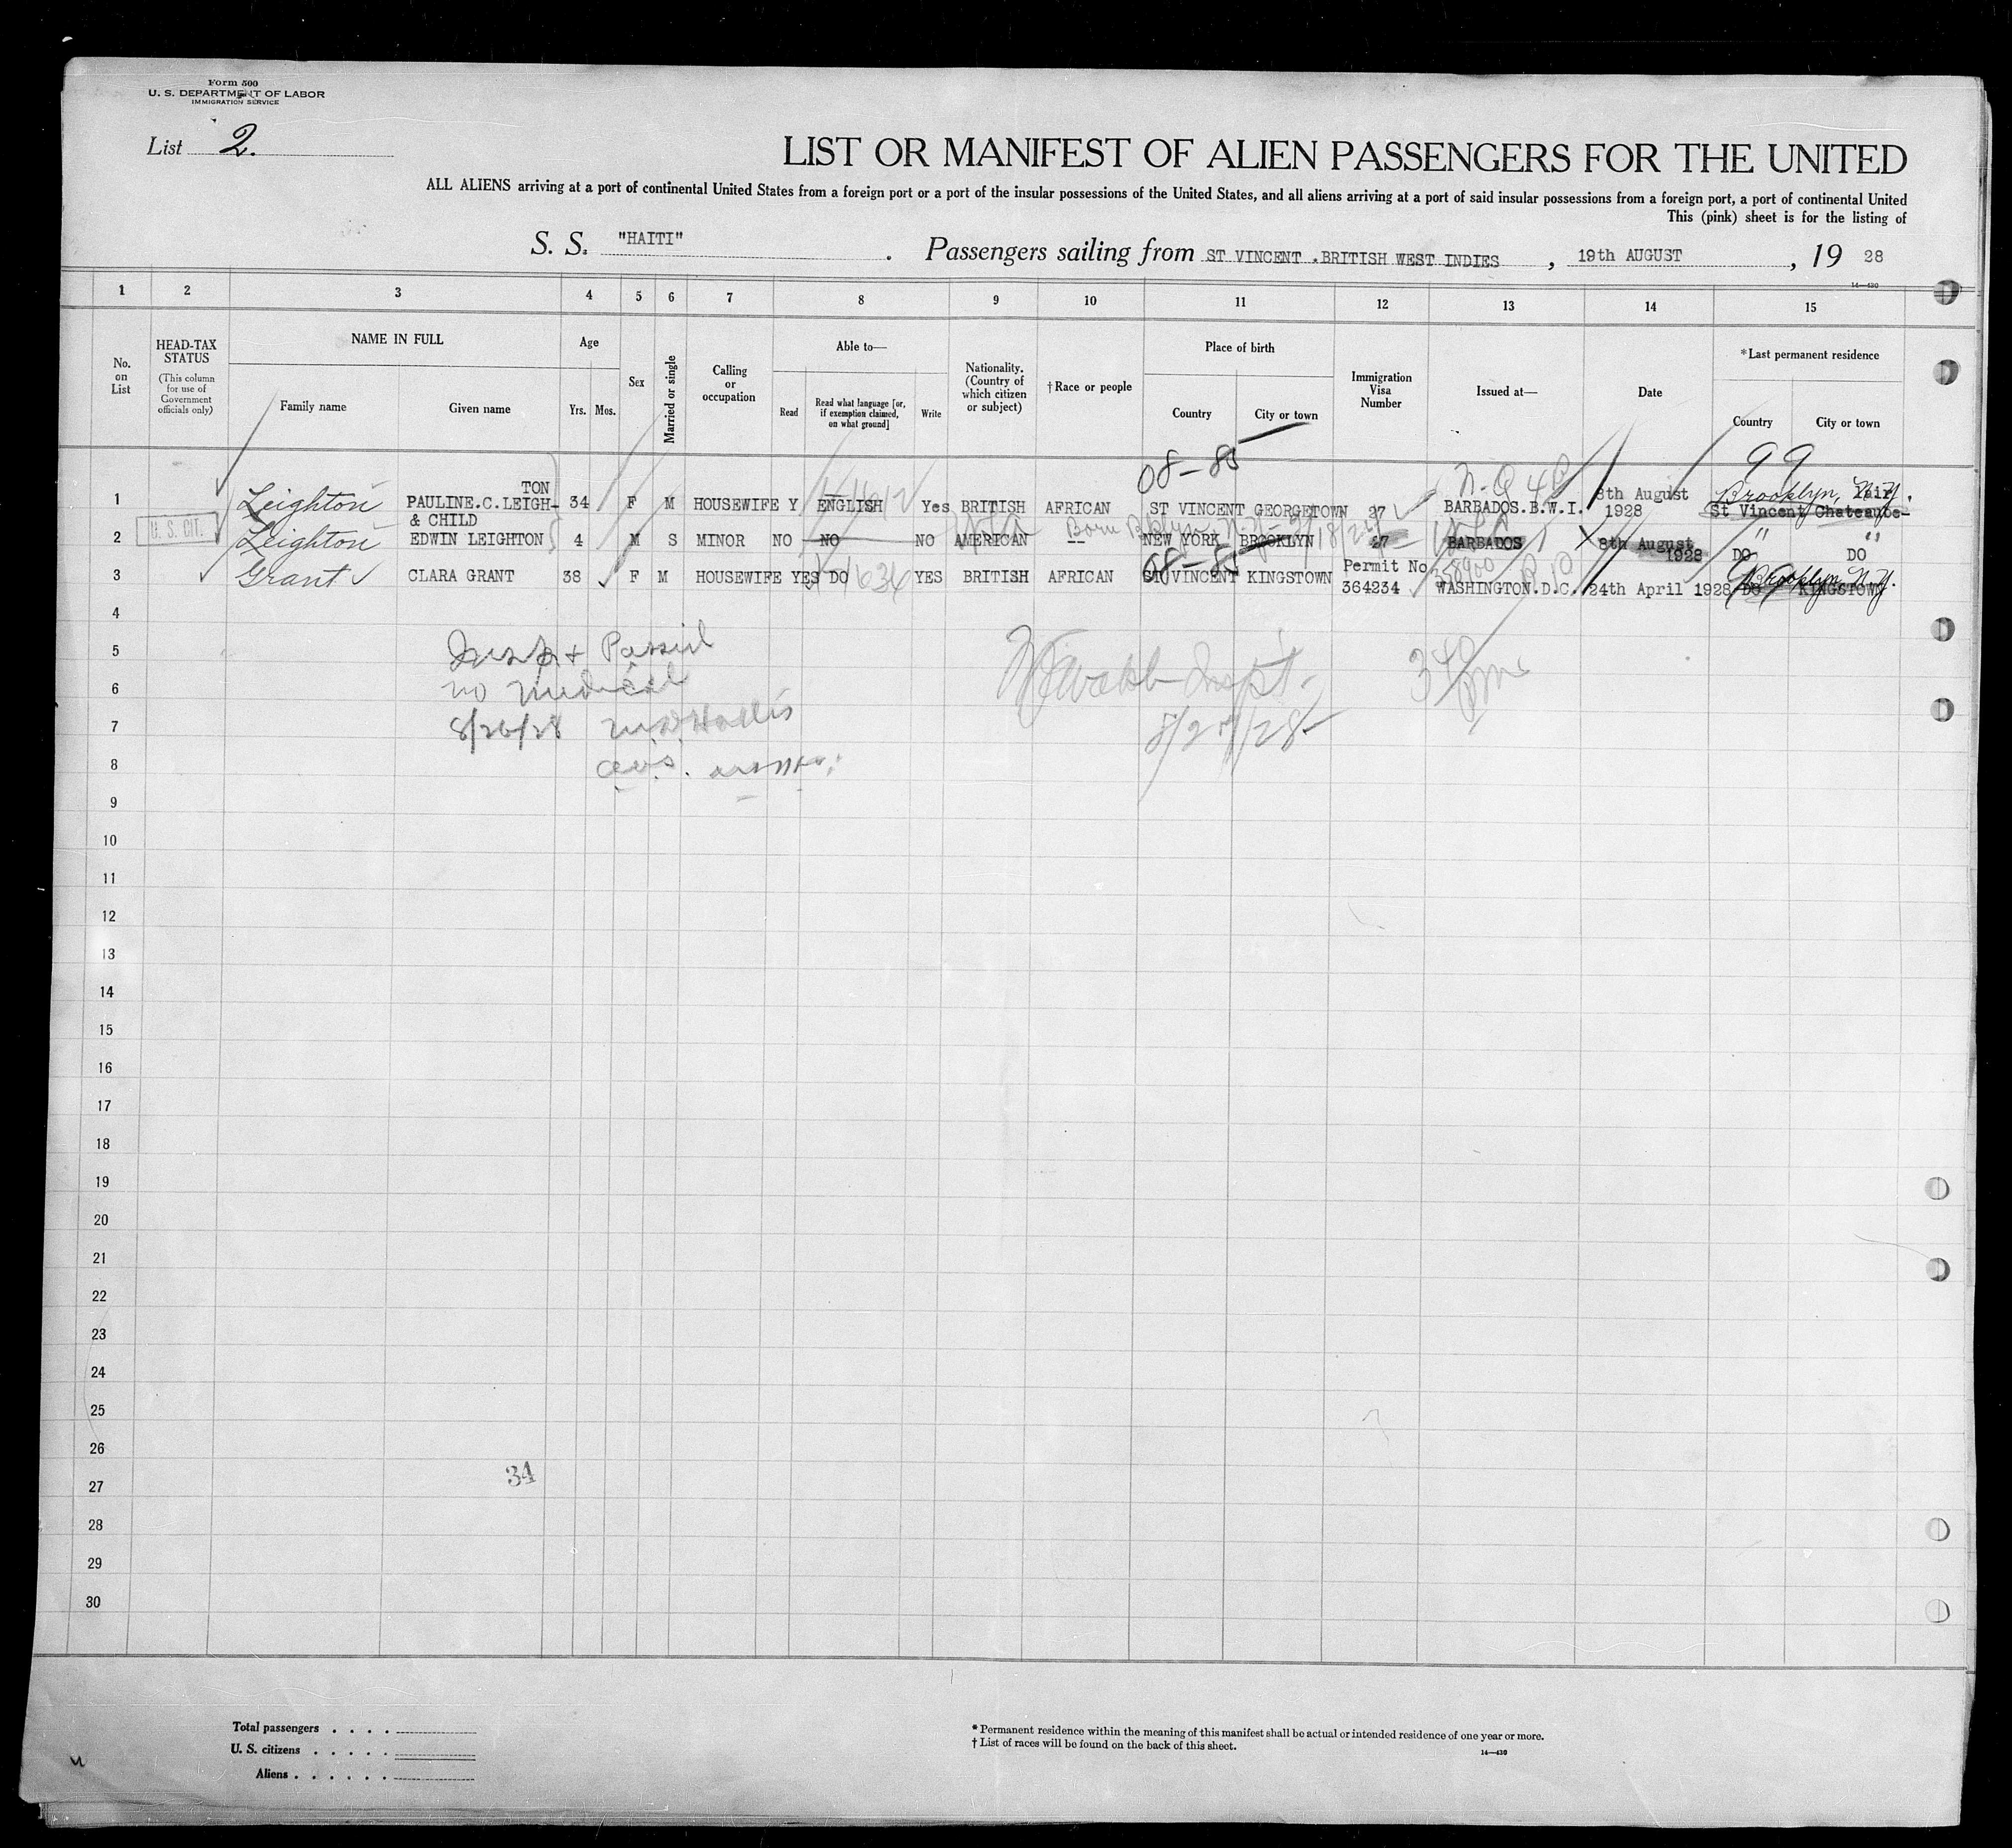 Form 500
U. S. DEPARTMENT OF LABOR
IMMIGRATION SERVICE
List 2.
LIST OR MANIFEST OF ALIEN PASSENGERS FOR THE UNITED
ALL ALIENS arriving at a port of continental United States from a foreign port or a port of the insular possessions of the United States, and all aliens arriving at a port of said insular possessions from a foreign port, a port of continental United
This (pink) sheet is for the listing of
S. S. "HAITI" . Passengers sailing from ST VINCENT .BRITISH WEST INDIES , 19th AUGUST , 19 28
14—430
1 2 3 4 5 6 7 8 9 10 11 12 13 14 15
No. on List
HEAD-TAX STATUS
(This column for use of Government officials only)
NAME IN FULL
Family name Given name
Age
Yrs. Mos.
Sex
Married or single
Calling or occupation
Able to—
Read
Read what language [or, if exemption claimed, on what ground]
Write
Nationality. (Country of which citizen or subject)
†Race or people
Place of birth
Country City or town
Immigration Visa Number
Issued at—
Date
*Last permanent residence
Country City or town
08-85 99
TON
1 Leighton PAULINE.C.LEIGH- 34 F M HOUSEWIFE Y ENGLISH Yes BRITISH AFRICAN ST VINCENT GEORGETOWN 27 BARBADOS.B.W.I. 8th August 1928 Brooklyn, N.Y. St Vincent Chateaube-lair
& CHILD
U. S. CIT.
2 Leighton EDWIN LEIGHTON 4 M S MINOR NO NO NO AMERICAN -- NEW YORK BROOKLYN 27 BARBADOS 8th August 1928 DO DO
Born Bklyn, N.Y.
08-85
3 Grant CLARA GRANT 38 F M HOUSEWIFE YES DO YES BRITISH AFRICAN ST VINCENT KINGSTOWN Permit No 364234 WASHINGTON.D.C. 24th April 1928 DO KINGSTOWN
Brooklyn N.Y.
4
5
6
7
8
9
10
11
12
13
14
15
16
17
18
19
20
21
22
23
24
25
26
27
28
29
30
Insp + Passed
no medical
8/26/28
Inspt.
8/27/28
34
Total passengers . . . .
U. S. citizens . . . . .
Aliens . . . . . .
* Permanent residence within the meaning of this manifest shall be actual or intended residence of one year or more.
† List of races will be found on the back of this sheet.
14—430